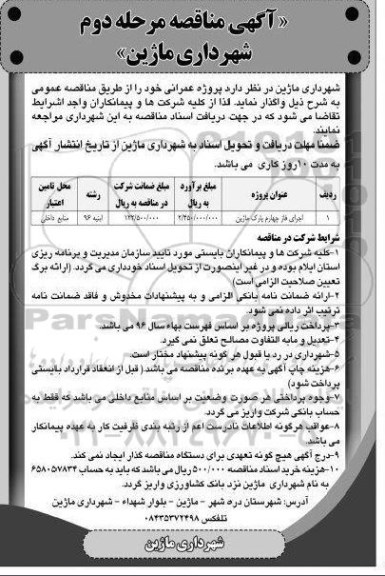 « آگهی مناقصه مرحله دوم
شهرداری ماژین»
شهرداری ماژین در نظر دارد پروژه عمرانی خود را از طریق مناقصه عمومی
به شرح ذیل واگذار نماید. لذا از کلیه شرکت ها و پیمانکاران واجد اشرایط
تقاضا می شود که در جهت دریافت اسناد مناقصه به این شهرداری مراجعه
نمایند.
ضمنا مهلت دریافت و تحویل اسناد به شهرداری ماژین از تاریخ انتشار آگهی
به مدت ۱۰روز کاری می باشد.
ردیف عنوان پروژه مبلغ برآورد به ریال مبلغ ضمانت شرکت در مناقصه به ریال رشته محل تامین اعتبار
۱ اجرای فاز چهارم پارک ماژین ۲/۴۵۰/۰۰۰/۰۰۰ ۱۲۲/۵۰۰/۰۰۰ ابنیه ۹۶ منابع داخلی
شرایط شرکت در مناقصه
۱-کلیه شرکت ها و پیمانکاران بایستی مورد تایید سازمان مدیریت و برنامه ریزی
استان ایلام بوده و در غیر اینصورت از تحویل اسناد خودداری می گردد. (ارائه برگ
تعیین صلاحیت الزامی است)
۲-ارائه ضمانت نامه بانکی الزامی و به پیشنهادات مخدوش و فاقد ضمانت نامه
ترتیب اثر داده نمی شود.
۳-پرداخت ریالی پروژه بر اساس فهرست بهاء سال ۹۶ می باشد.
۴-تعدیل و مابه التفاوت مصالح تعلق نمی گیرد.
۵-شهرداری در رد یا قبول هر گونه پیشنهاد مختار است.
۶-هزینه چاپ آگهی به عهده برنده مناقصه می باشد ( قبل از انعقاد قرارداد بایستی
پرداخت شود)
۷-وجوه پرداختی هر صورت وضعیت بر اساس منابع داخلی می باشد که فقط به
حساب بانکی شرکت واریز می گردد.
۸-عواقب هرگونه اطلاعات نادرست اعم از رتبه بندی ظرفیت کار به عهده پیمانکار
می باشد.
۹-درج آگهی هیچ گونه تعهدی برای دستگاه مناقصه گذار ایجاد نمی کند.
۱۰-هزینه خرید اسناد مناقصه ۵۰۰/۰۰۰ ریال می باشد که باید به حساب ۶۵۸۰۵۷۸۳۴
به نام شهرداری ماژین نزد بانک کشاورزی واریز گردد.
آدرس: شهرستان دره شهر - ماژین - بلوار شهداء - شهرداری ماژین
تلفکس ۰۸۴۳۵۳۷۲۴۹۸
شهرداری ماژین